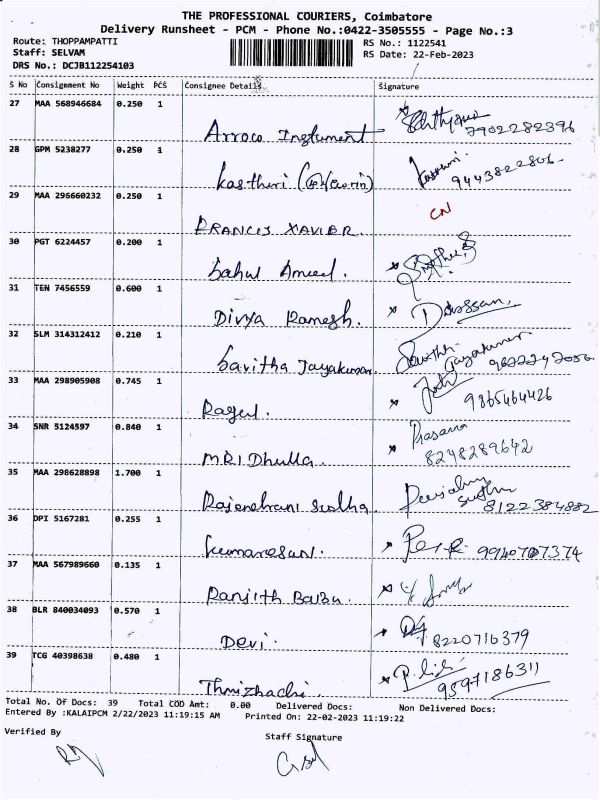 THE PROFESSIONAL COURIERS, Coimbatore
Delivery Runsheet - PCM - Phone No.:0422-3505555 - Page No.:3
Route: THOPPAMPATTI RS No.: 1122541
Staff: SELVAM RS Date: 22-Feb-2023
DRS No.: DCJB112254103
S No Consignment No Weight PCS Consignee Details Signature
27 MAA 568946684 0.250 1
Arroco Instument 7902282396
28 GPM 5238277 0.250 1
Kasthuri 9443822806
29 MAA 296660232 0.250 1
FRANCIS XAVIER CN
30 PGT 6224457 0.200 1
Sahul Ameed.
31 TEN 7456559 0.600 1
Divya Ramesh.
32 SLM 314312412 0.210 1
Savitha Jayakumar Jayakumar
33 MAA 298905908 0.745 1
Ragul. 9865464426
34 SNR 5124597 0.840 1
Prasana
MRI Dhulla 8248289642
35 MAA 298628898 1.700 1
Rajendrani Sudha 8122384882
36 DPI 5167281 0.255 1
Kumaresan. 9940707374
37 MAA 567989660 0.135 1
Ranjith Babu.
38 BLR 840034093 0.570 1
Devi. 8220716379
39 TCG 40398638 0.480 1
Thmizhachi. 9597186311
Total No. Of Docs: 39 Total COD Amt: 0.00 Delivered Docs: Non Delivered Docs:
Entered By :KALAIPCM 2/22/2023 11:19:15 AM Printed On: 22-02-2023 11:19:22
Verified By Staff Signature